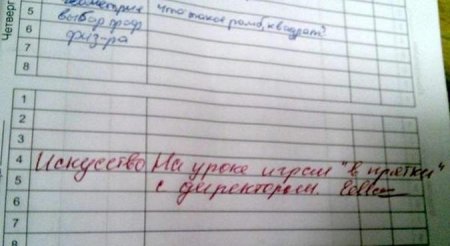 Четверг
геометрия что такое ромб, квадрат?
5 выбор проф
6 физ-ра
7
8
1
2
3
4 Искусство На уроке играл "в прятки"
5 с директором.
6
7
8